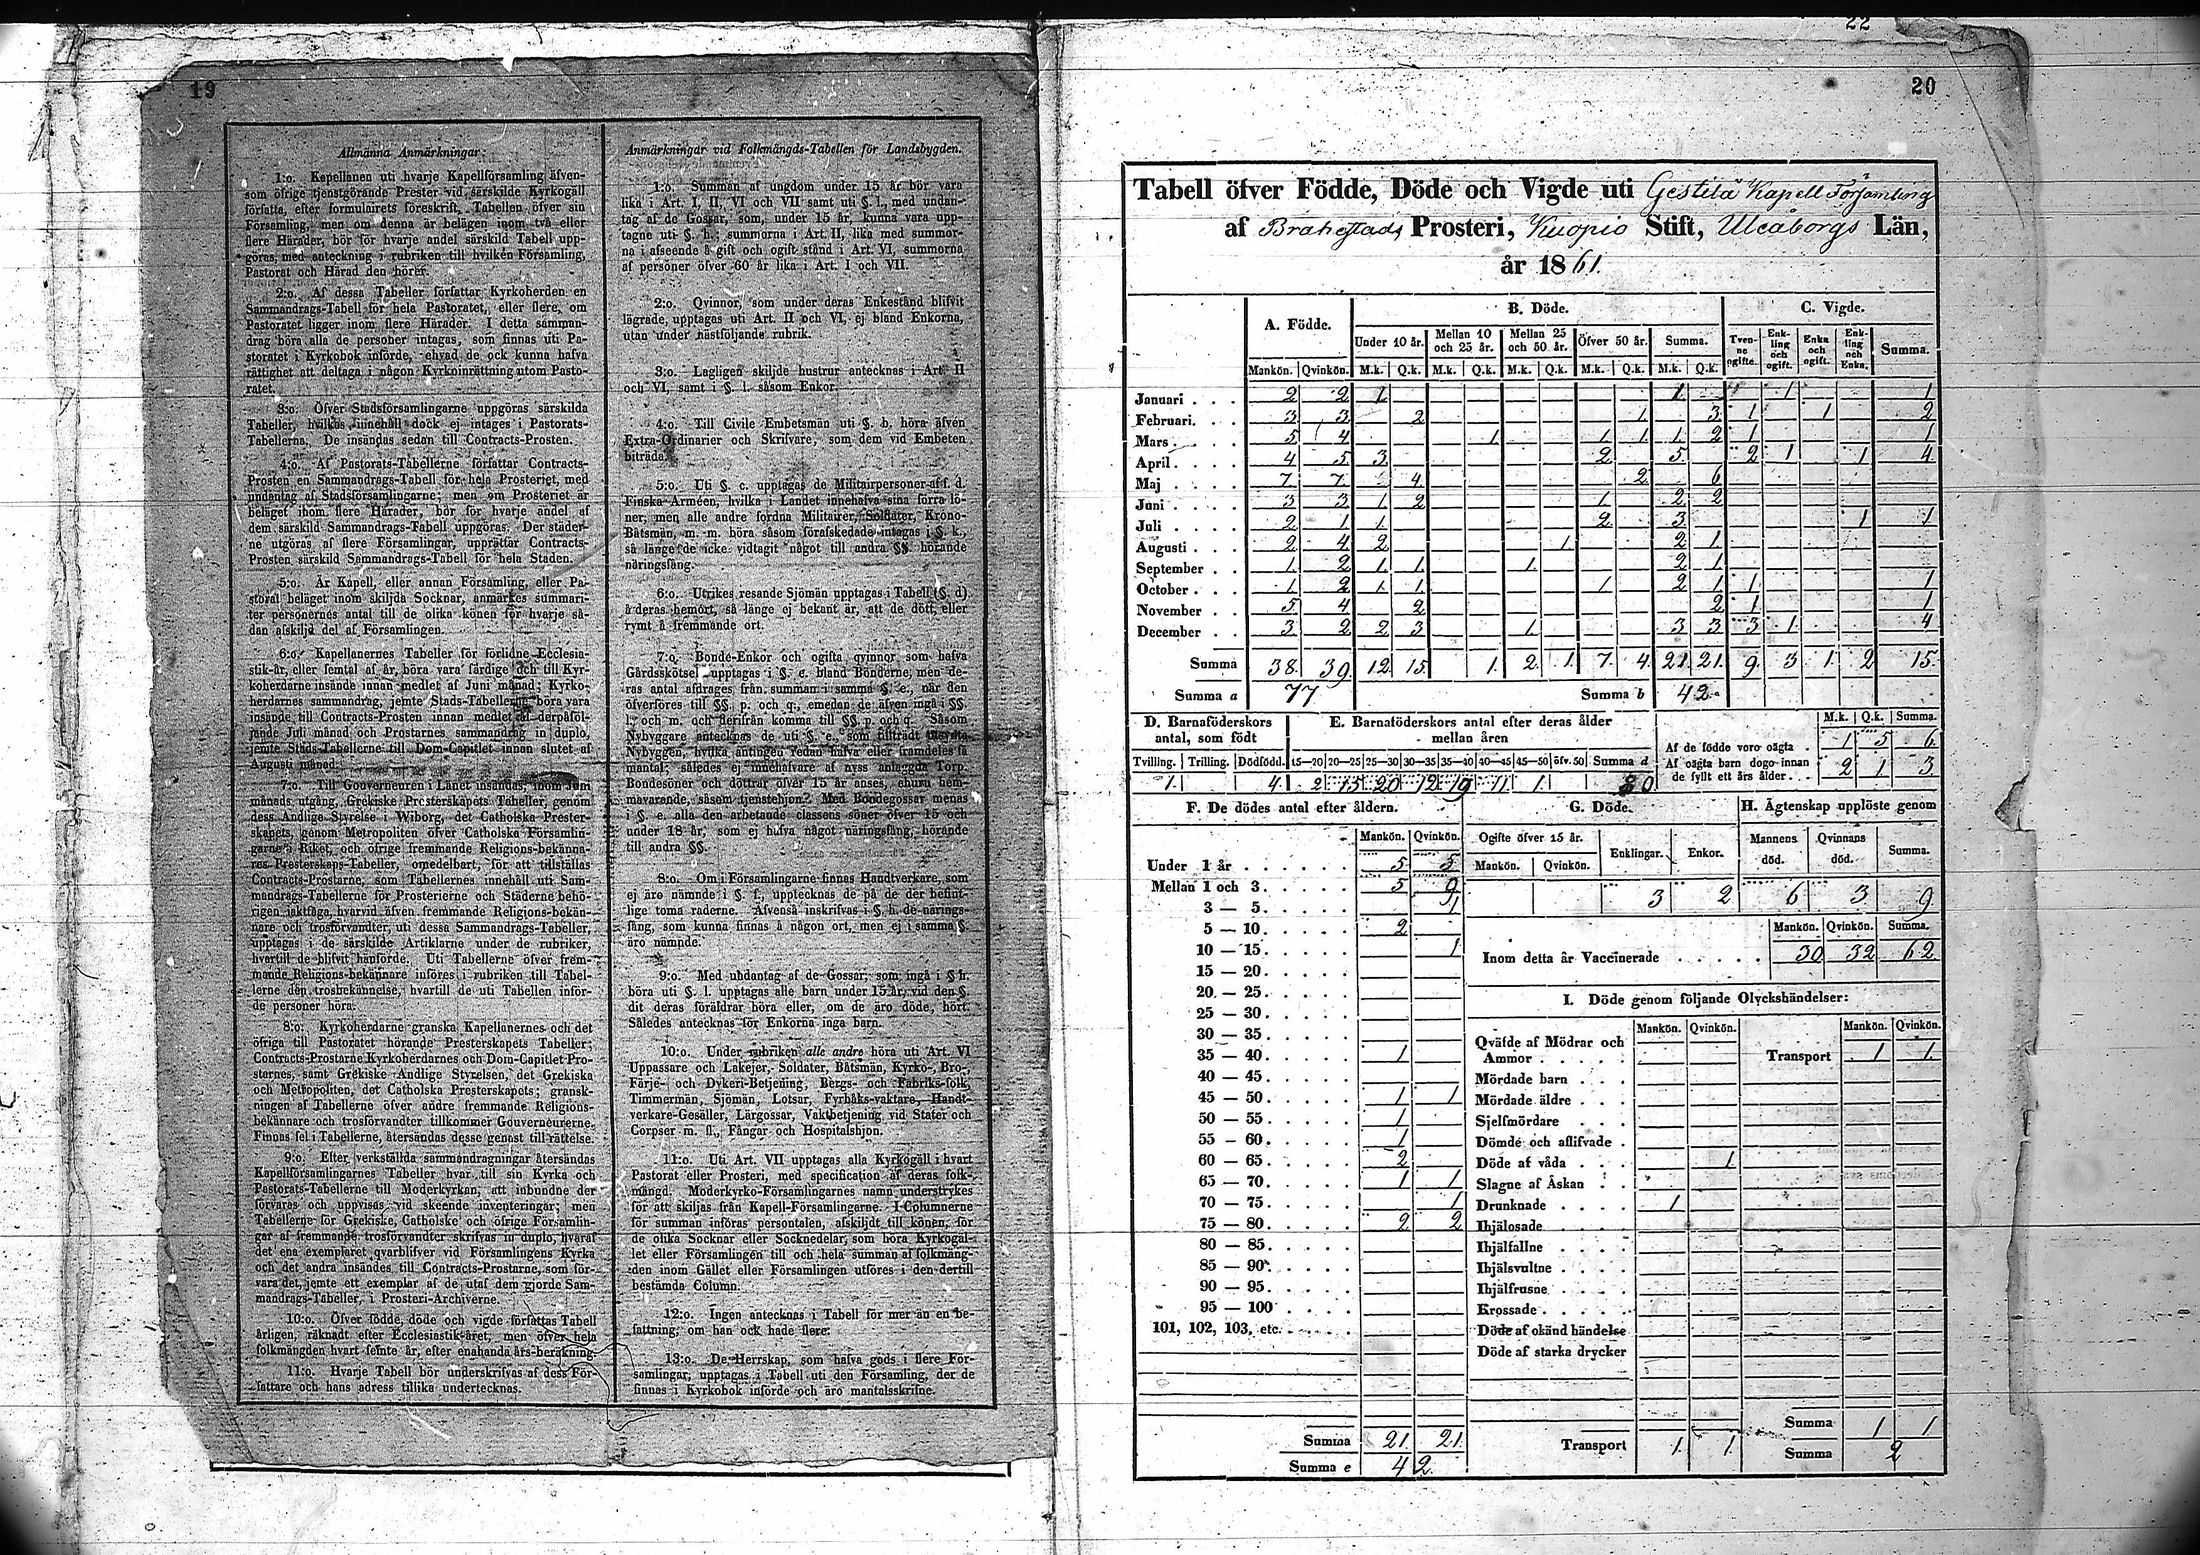 22
19
Allmänna Anmärkningar:
1:o. Kapellanen uti hvarje Kapellförsamling äfven-
som öfrige tjenstgörande Prester vid särskilde Kyrkogäll
författa, efter formulairets föreskrift, Tabellen öfver sin
Församling, men om denna är belägen inom två eller
flere Härader, bör för hvarje andel särskild Tabell upp-
göras, med anteckning i rubriken till hvilken Församling,
Pastorat och Härad den hörer.
2:o. Af dessa Tabeller författar Kyrkoherden en
Sammandrags-Tabell för hela Pastoratet, eller flere, om
Pastoratet ligger inom flere Härader. I detta samman-
drag böra alla de personer intagas, som finnas uti Pa-
storatet i Kyrkobok införde, ehvad de ock kunna hafva
rättighet att deltaga i någon Kyrkoinrättning utom Pasto-
ratet.
3:o. Öfver Stadsförsamlingarne uppgöras särskilda
Tabeller, hvilkas innehåll dock ej intages i Pastorats-
Tabellerna. De insändas sedan till Contracts-Prosten.
4:o. Af Pastorats-Tabellerne författar Contracts-
Prosten en Sammandrags-Tabell för hela Prosteriet, med
undantag af Stadsförsamlingarne; men om Prosteriet är
beläget inom flere Härader, bör för hvarje andel af
dem särskild Sammandrags-Tabell uppgöras. Der städer-
ne utgöras af flere Församlingar, upprättar Contracts-
Prosten särskild Sammandrags-Tabell för hela Staden.
5:o. Är Kapell, eller annan Församling, eller Pa-
storat beläget inom skiljda Socknar, anmärkes summari-
ter personernes antal till de olika könen för hvarje så-
dan afskiljd del af Församlingen.
6:o. Kapellanernes Tabeller för förlidne Ecclesia-
stik-år, eller femtal af år, böra vara färdige och till Kyr-
koherdarne insände innan medlet af Juni månad; Kyrko-
herdarnes sammandrag, jemte Stads-Tabellerne, böra vara
insände till Contracts-Prosten innan medlet af derpåföl-
jande Juli månad och Prostarnes sammandrag in duplo,
jemte Stads-Tabellerne till Dom-Capitlet innan slutet af
Augusti månad.
7:o. Till Gouverneuren i Länet insändas, inom Juni
månads utgång, Grekiske Presterskapets Tabeller, genom
dess Andlige Styrelse i Wiborg, det Catholske Prester-
skapets, genom Metropoliten öfver Catholska Församlin-
garne i Riket, och öfrige fremmande Religions-bekänna-
res Presterskaps-Tabeller, omedelbart, för att tillställas
Contracts-Prostarne, som Tabellernes innehåll uti Sam-
mandrags-Tabellerne för Prosterierne och Städerne behö-
rigen iakttaga, hvarvid äfven fremmande Religions-bekän-
nare och trosförvandter, uti dessa Sammandrags-Tabeller,
upptagas i de särskilde Artiklarne under de rubriker,
hvartill de blifvit hänförde. Uti Tabellerne öfver frem-
mande Religions-bekännare införes i rubriken till Tabel-
lerne den trosbekännelse, hvartill de uti Tabellen inför-
de personer höra.
8:o. Kyrkoherdarne granska Kapellanernes och det
öfriga till Pastoratet hörande Presterskapets Tabeller;
Contracts-Prostarne Kyrkoherdarnes och Dom-Capitlet Pro-
sternes, samt Grekiske Andlige Styrelsen, det Grekiska
och Metropoliten, det Catholska Presterskapets; gransk-
ningen af Tabellerne öfver andre fremmande Religions-
bekännare och trosförvandter tillkommer Gouverneurerne.
Finnas fel i Tabellerne, återsändas desse genast till rättelse.
9:o. Efter verkställda sammandragningar återsändas
Kapellförsamlingarnes Tabeller hvar till sin Kyrka och
Pastorats-Tabellerne till Moderkyrkan, att inbundne der
förvaras och uppvisas vid skeende inventeringar; men
Tabellerne för Grekiske, Catholske och öfrige Församlin-
gar af fremmande trosförvandter skrifvas in duplo, hvaraf
det ena exemplaret qvarblifver vid Församlingens Kyrka
och det andra insändes till Contracts-Prostarne, som för-
vara det, jemte ett exemplar af de utaf dem gjorde Sam-
mandrags-Tabeller, i Prosteri-Archiverne.
10:o. Öfver födde, döde och vigde författas Tabell
årligen, räknadt efter Ecclesiastik-året; men öfver hela
folkmängden hvart femte år, efter enahanda års-beräkning.
11:o. Hvarje Tabell bör underskrifvas af dess För-
fattare och hans adress tillika undertecknas.
Anmärkningar vid Folkmängds-Tabellen för Landsbygden.
1:o. Summan af ungdom under 15 år bör vara
lika i Art. I, II, VI och VII samt uti §. l., med undan-
tag af de Gossar, som, under 15 år, kunna vara upp-
tagne uti §. h.; summorna i Art. II, lika med summor-
na i afseende å gift och ogift stånd i Art. VI, summorna
af personer öfver 60 år lika i Art. I och VII.
2:o. Qvinnor, som under deras Enkestånd blifvit
lägrade, upptagas uti Art. II och VI, ej bland Enkorna,
utan under nästföljande rubrik.
3:o. Lagligen skiljde hustrur antecknas i Art. II
och VI, samt i §. l. såsom Enkor.
4:o. Till Civile Embetsmän uti §. b. höra äfven
Extra-Ordinarier och Skrifvare, som dem vid Embeten
biträda.
5:o. Uti §. c. upptagas de Militairpersoner af f. d.
Finska Arméen, hvilka i Landet innehafva sina förra lö-
ner, men alle andre fordna Militairer, Soldater, Krono-
Båtsmän, m. m. höra såsom förafskedade intagas i §. k.,
så länge de icke vidtagit något till andra §§. hörande
näringsfång.
6:o. Utrikes resande Sjömän upptagas i Tabell (§. d)
å deras hemort, så länge ej bekant är, att de dött, eller
rymt å fremmande ort.
7:o. Bonde-Enkor och ogifta qvinnor som hafva
Gårdsskötsel upptagas i §. e. bland Bönderne, men de-
ras antal afdrages från summan i samma §. e., när den
öfverföres till §§. p. och q., emedan de äfven ingå i §§.
l. och m. och derifrån komma till §§. p. och q. Såsom
Nybyggare antecknas de uti §. e., som tillträdt
Nybyggen, hvilka antingen redan hafva eller framdeles få
mantal; således ej innehafvare af nyss anlaggda Torp.
Bondesöner och döttrar öfver 15 år anses, ehuru hem-
mavarande, såsom tjenstehjon. Med Bondegossar menas
i §. e. alla den arbetande classens söner öfver 15 och
under 18 år, som ej hafva något näringsfång, hörande
till andra §§.
8:o. Om i Församlingarne finnas Handtverkare, som
ej äro nämnde i §. f., upptecknas de på de der befint-
lige toma raderne. Äfvenså inskrifvas i §. h. de närings-
fång, som kunna finnas å någon ort, men ej i samma §.
äro nämnde.
9:o. Med undantag af de Gossar, som ingå i § h.
böra uti §. l. upptagas alle barn under 15 år, vid den §.
dit deras föräldrar höra eller, om de äro döde, hört.
Således antecknas för Enkorna inga barn.
10:o. Under rubriken alle andre höra uti Art. VI
Uppassare och Lakejer, Soldater, Båtsmän, Kyrko-, Bro-,
Färje- och Dykeri-Betjening, Bergs- och Fabriks-folk,
Timmermän, Sjömän, Lotsar, Fyrbåks-vaktare, Handt-
verkare-Gesäller, Lärgossar, Vaktbetjening vid Stater och
Corpser m. fl., Fångar och Hospitalshjon.
11:o. Uti Art. VII upptagas alla Kyrkogäll i hvart
Pastorat eller Prosteri, med specification af deras folk-
mängd. Moderkyrko-Församlingarnes namn understrykes
för att skiljas från Kapell-Församlingarne. I Columnerne
för summan införas persontalen, afskiljdt till könen, för
de olika Socknar eller Socknedelar, som höra Kyrkogäl-
let eller Församlingen till och hela summan af folkmäng-
den inom Gället eller Församlingen utföres i den dertill
bestämda Column.
12:o. Ingen antecknas i Tabell för mer än en be-
fattning, om han ock hade flere.
13:o. De Herrskap, som hafva gods i flere För-
samlingar, upptagas i Tabell uti den Församling, der de
finnas i Kyrkobok införde och äro mantalsskrifne.
20
Tabell öfver Födde, Döde och Vigde uti Gestilä Kapell Församling
af Brahestads Prosteri, Kuopio Stift, Uleåborgs Län,
år 1861.
A. Födde. B. Döde. C. Vigde.
Under 10 år. Mellan 10 och 25 år. Mellan 25 och 50 år. Öfver 50 år. Summa. Tvenne ogifte. Enkling och ogift. Enka och ogift. Enkling och Enka. Summa.
Mankön. Qvinkön. M.k. Q.k. M.k. Q.k. M.k. Q.k. M.k. Q.k. M.k. Q.k.
Januari . . . 2 2 1 1 1 1
Februari. . . 3 3 2 1 3 1 1 2
Mars . . . . 5 4 1 1 1 1 2 1 1
April . . . . 4 5 3 2 5 2 1 1 4
Maj . . . . 7 7 4 2 6
Juni . . . . 3 3 1 2 1 2 2
Juli . . . . 2 1 1 2 3 1 1
Augusti . . . 2 4 2 1 2 1
September . . 1 2 1 1 1 2 1
October . . . 1 2 1 1 1 2 1 1 1
November . . 5 4 2 2 1 1
December . . 3 2 2 3 1 3 3 3 1 4
Summa 38 39 12 15 1 2 1 7 4 21 21 9 3 1 2 15
Summa a 77 Summa b 42
D. Barnaföderskors antal, som födt
E. Barnaföderskors antal efter deras ålder mellan åren
Tvilling. Trilling. Dödfödd. 15—20 20—25 25—30 30—35 35—40 40—45 45—50 öfv. 50 Summa d
1 4 2 15 20 12 19 11 1 80
M.k. Q.k. Summa.
Af de födde voro oägta . 1 5 6
Af oägta barn dogo innan
de fyllt ett års ålder . . . 2 1 3
F. De dödes antal efter åldern.
Mankön. Qvinkön.
Under 1 år . . . . . . 5 5
Mellan 1 och 3. . . . . 5 9
3 — 5. . . . . 1
5 — 10. . . . . 2
10 — 15. . . . . 1
15 — 20. . . . .
20 — 25. . . . .
25 — 30. . . . .
30 — 35. . . . .
35 — 40. . . . . 1
40 — 45. . . . .
45 — 50. . . . . 1 1
50 — 55. . . . . 1
55 — 60. . . . . 1
60 — 65. . . . . 2
65 — 70. . . . . 1 1
70 — 75. . . . . 1
75 — 80. . . . . 2 2
80 — 85. . . . .
85 — 90. . . . .
90 — 95. . . . .
95 — 100 . . . .
101, 102, 103, etc. . . . . .
Summa 21 21
Summa e 42
G. Döde.
Ogifte öfver 15 år. Enklingar. Enkor.
Mankön. Qvinkön.
3 2
H. Ägtenskap upplöste genom
Mannens död. Qvinnans död. Summa.
6 3 9
Mankön. Qvinkön. Summa.
Inom detta år Vaccinerade . . . . . 30 32 62
I. Döde genom följande Olyckshändelser:
Mankön. Qvinkön. Mankön. Qvinkön.
Qväfde af Mödrar och
Ammor . . . . . Transport 1 1
Mördade barn . . .
Mördade äldre . . .
Sjelfmördare . . .
Dömde och aflifvade .
Döde af våda . . . 1
Slagne af Åskan . .
Drunknade . . . . 1
Ihjälosade . . . .
Ihjälfallne . . . .
Ihjälsvultne . . . .
Ihjälfrusne . . . .
Krossade . . . . .
Döde af okänd händelse
Döde af starka drycker
Summa 1 1
Transport 1 1 Summa 2